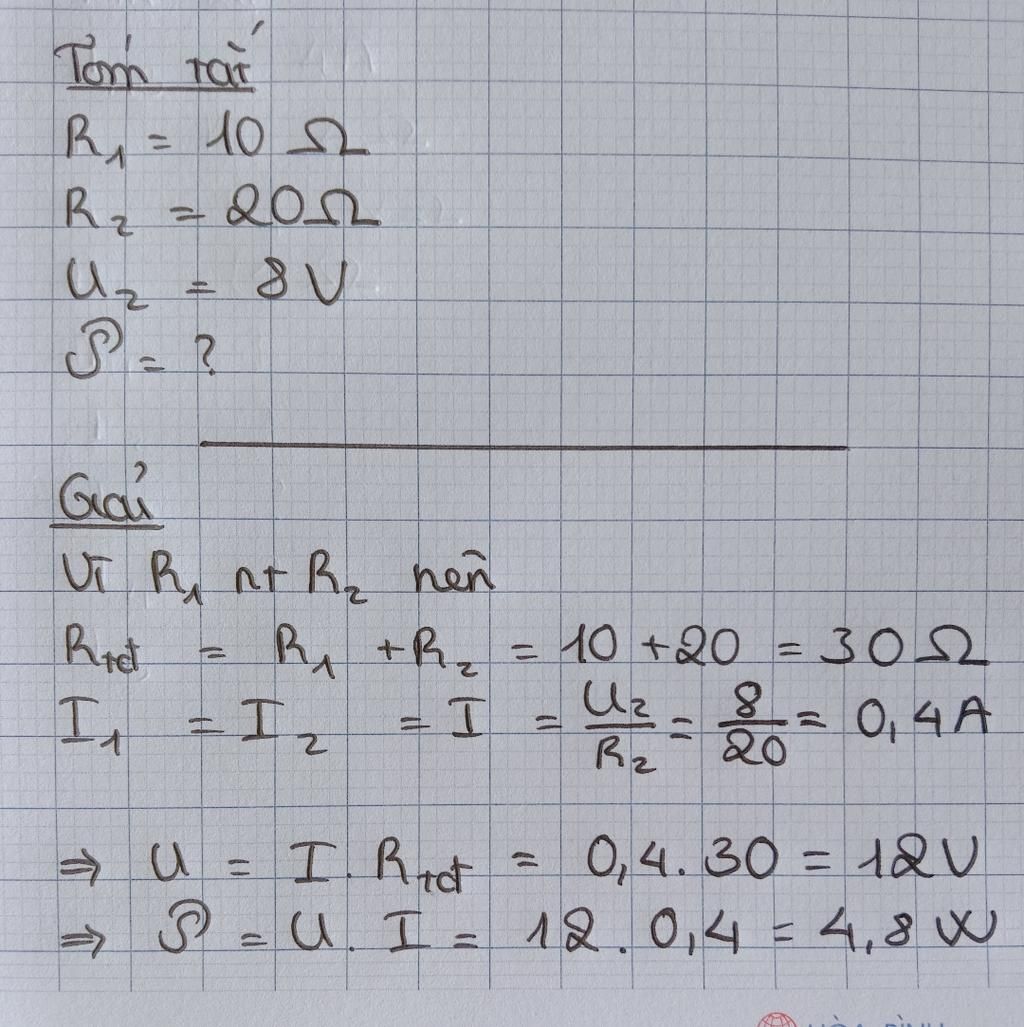 Tóm tắt
R₁ = 10 Ω
R₂ = 20Ω
U₂ = 8V
𝒫 = ?
Giải
Vì R₁ nt R₂ nên
Rtđ = R₁ + R₂ = 10 + 20 = 30 Ω
I₁ = I₂ = I = U₂/R₂ = 8/20 = 0,4A
⇒ U = I. Rtđ = 0,4. 30 = 12V
⇒ 𝒫 = U. I = 12. 0,4 = 4,8 W